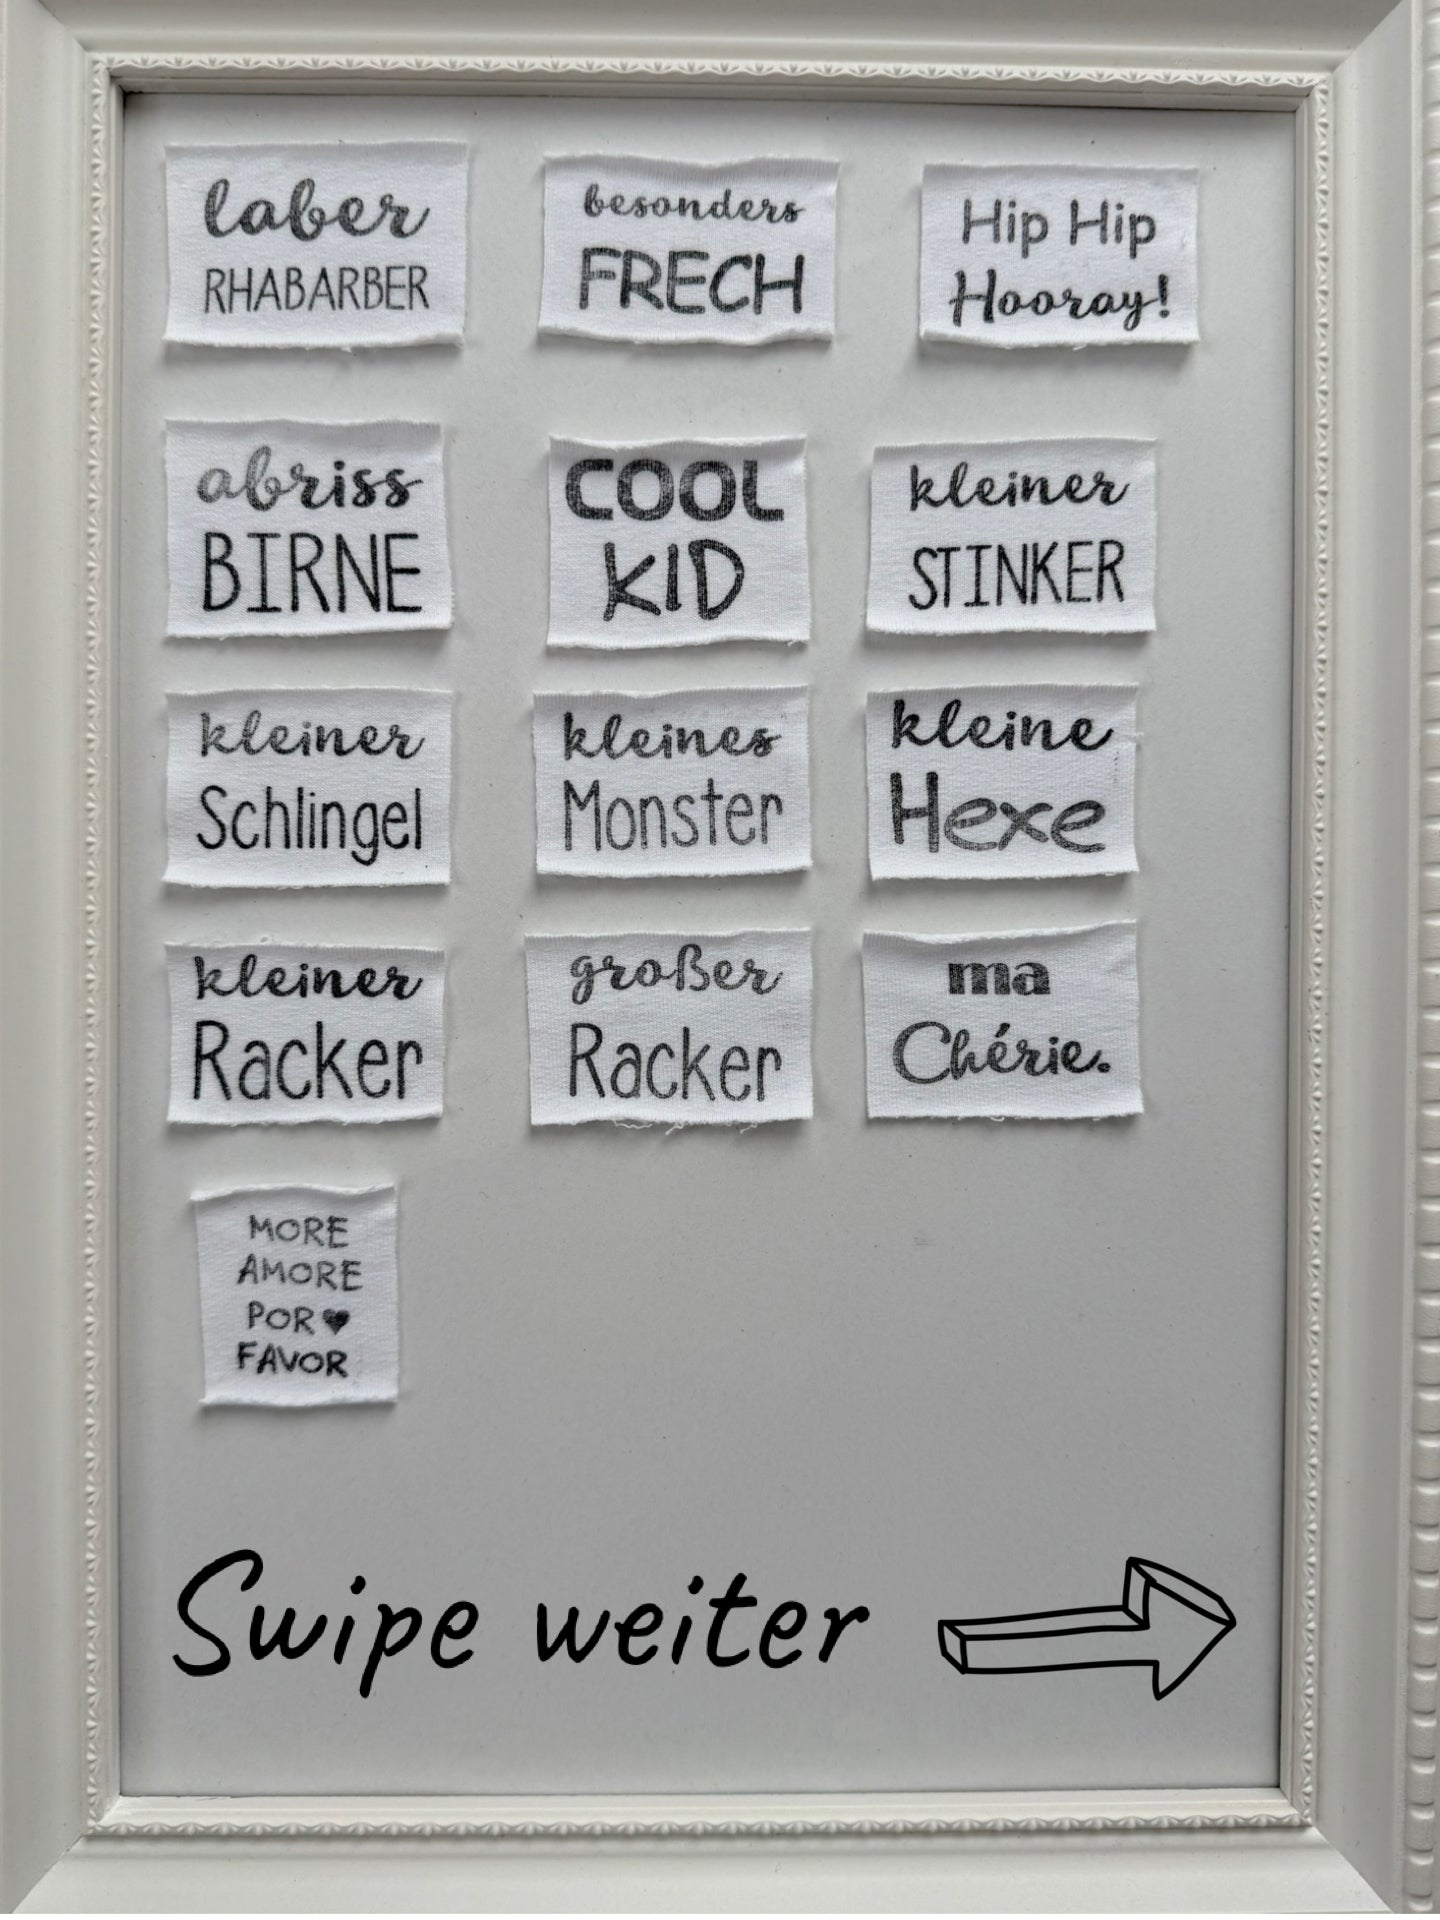 laber
RHABARBER
besonders
FRECH
Hip Hip
Hooray!
abriss
BIRNE
COOL
KID
kleiner
STINKER
kleiner
Schlingel
kleines
Monster
kleine
Hexe
kleiner
Racker
großer
Racker
ma
Chérie.
MORE
AMORE
POR♥
FAVOR
Swipe weiter